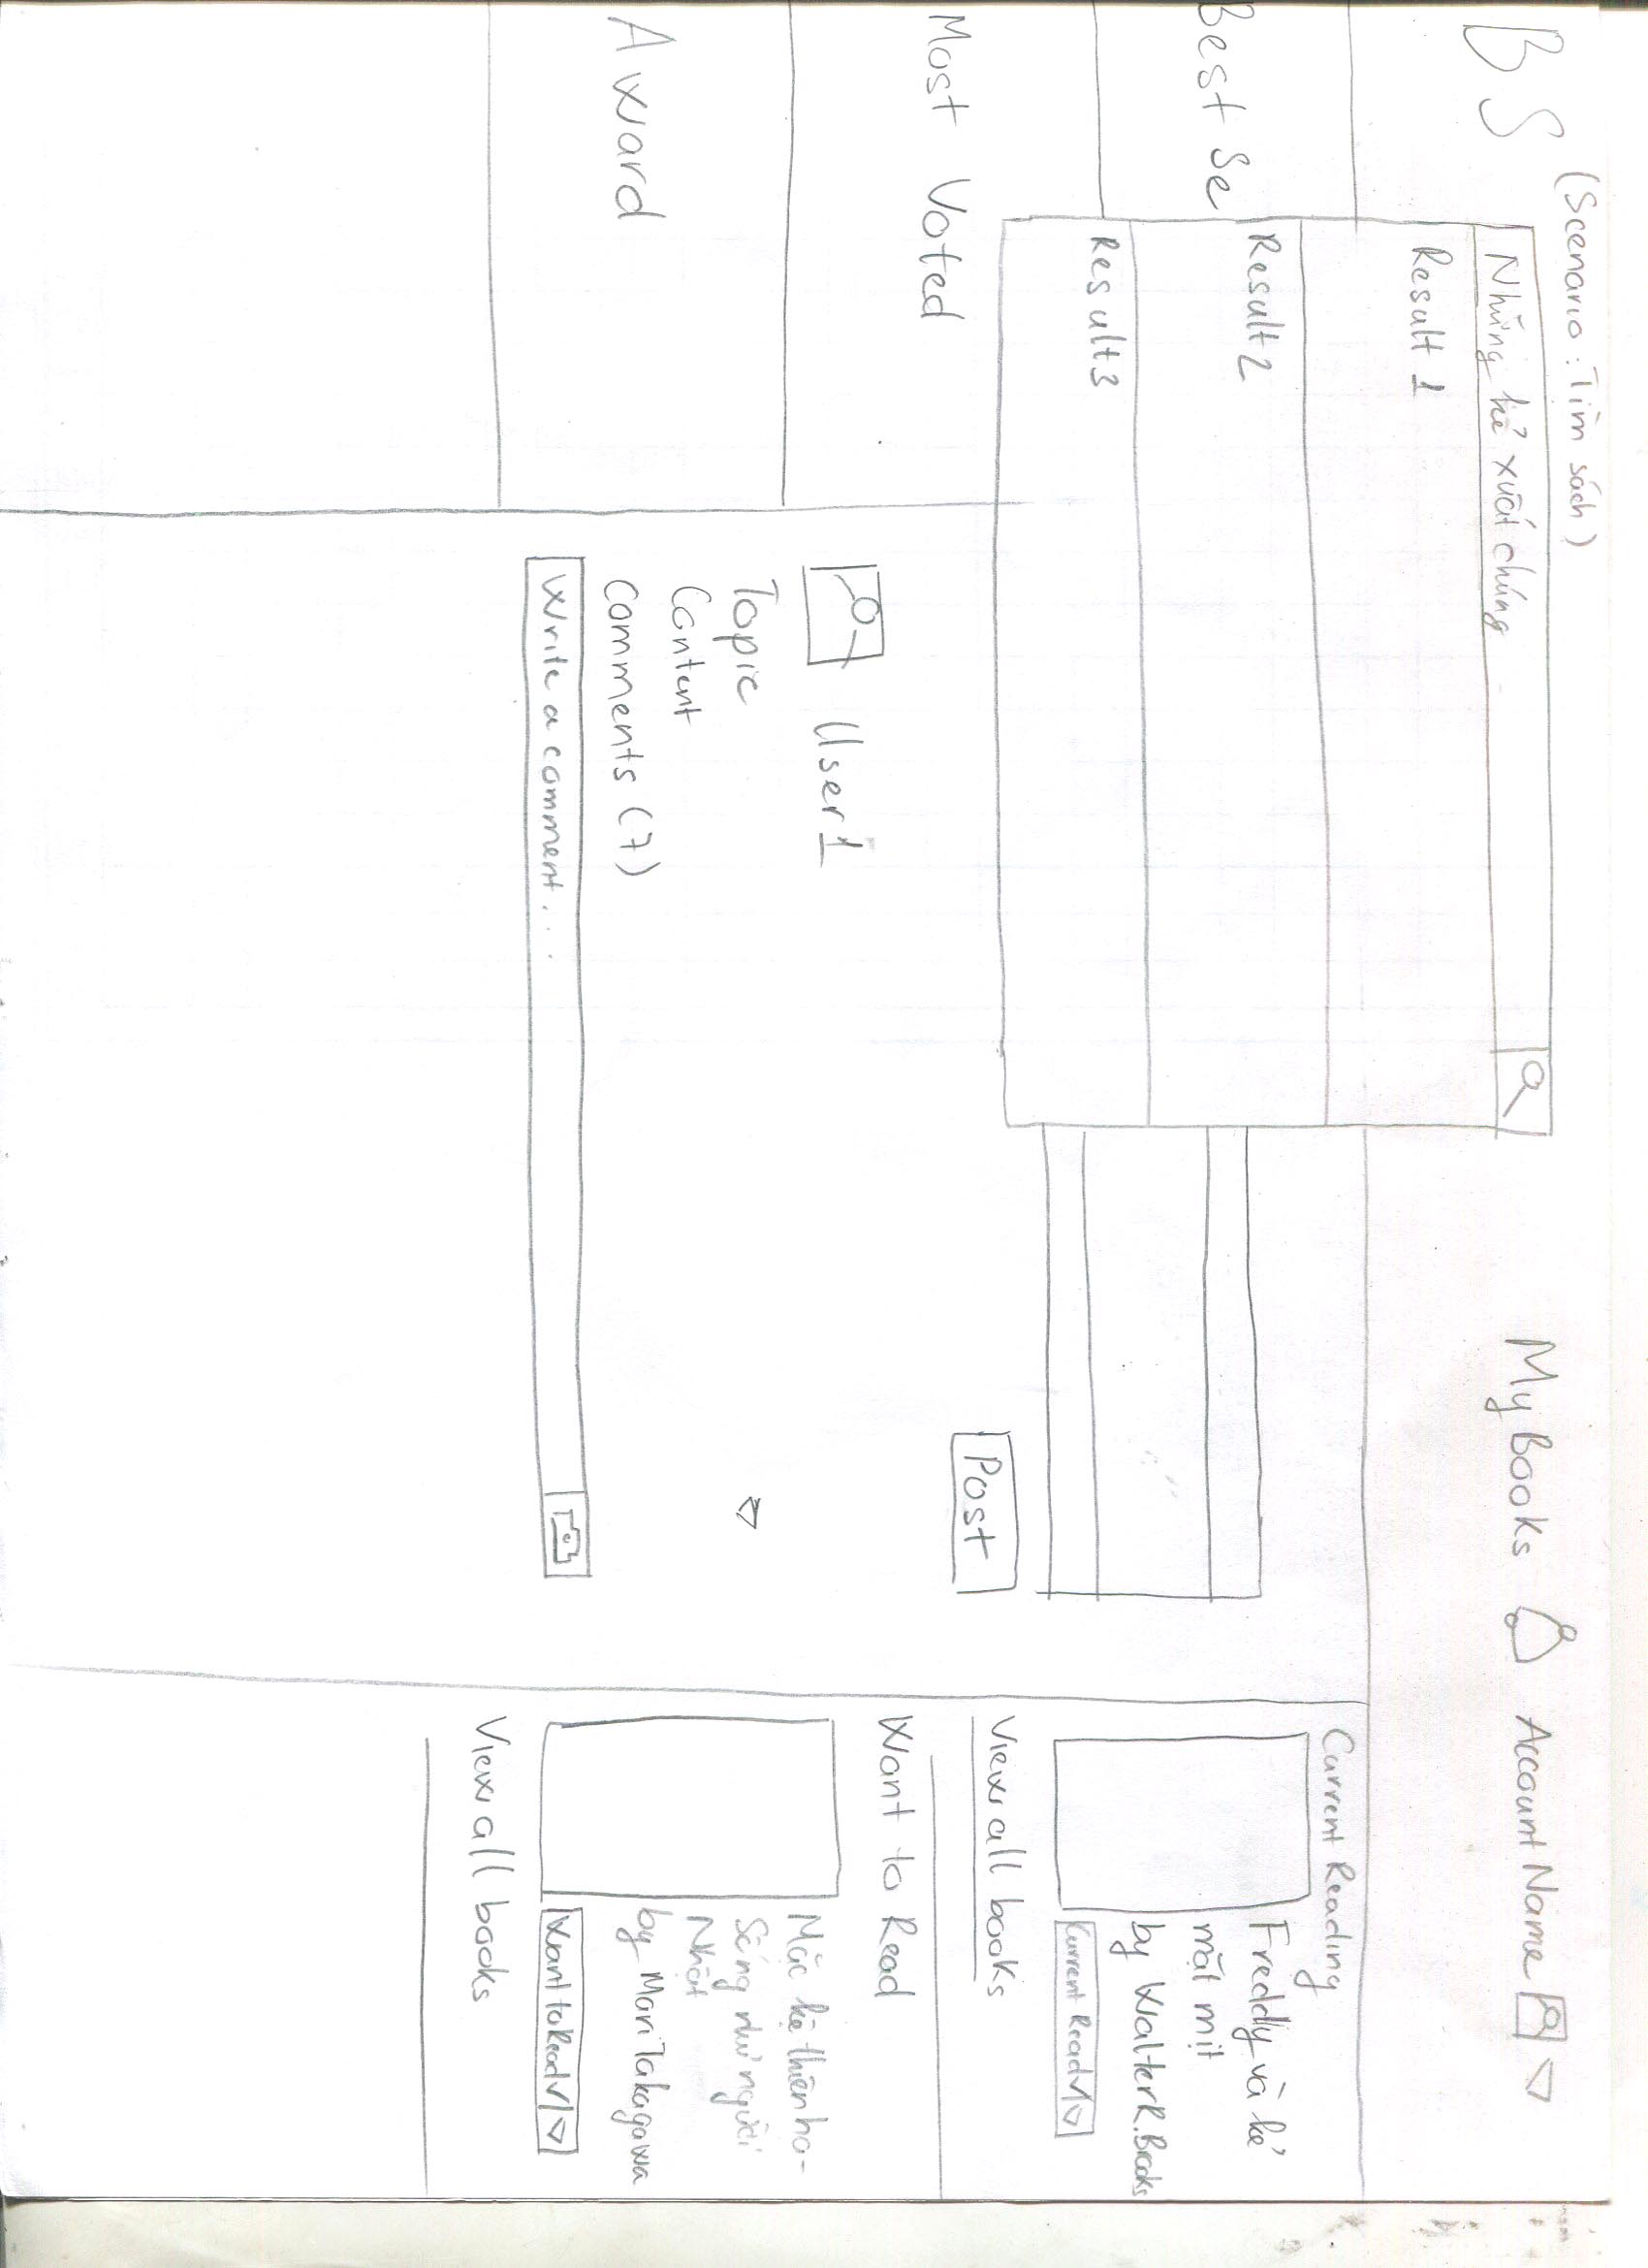 (Scenario: Tìm sách)
BS
Những kẻ xuất chúng
My Books
Account Name
Result 1
Result 2
Result 3
Best Se
Most Voted
Award
Post
User 1
Topic
Content
Comments (7)
Write a comment...
Current Reading
Freddy và kẻ
mặt mịt
by Walter R. Brooks
Current Read
View all books
Want to Read
Mặc kệ thiên hạ -
Sống như người
Nhật
by Mari Takagawa
Want to Read
View all books